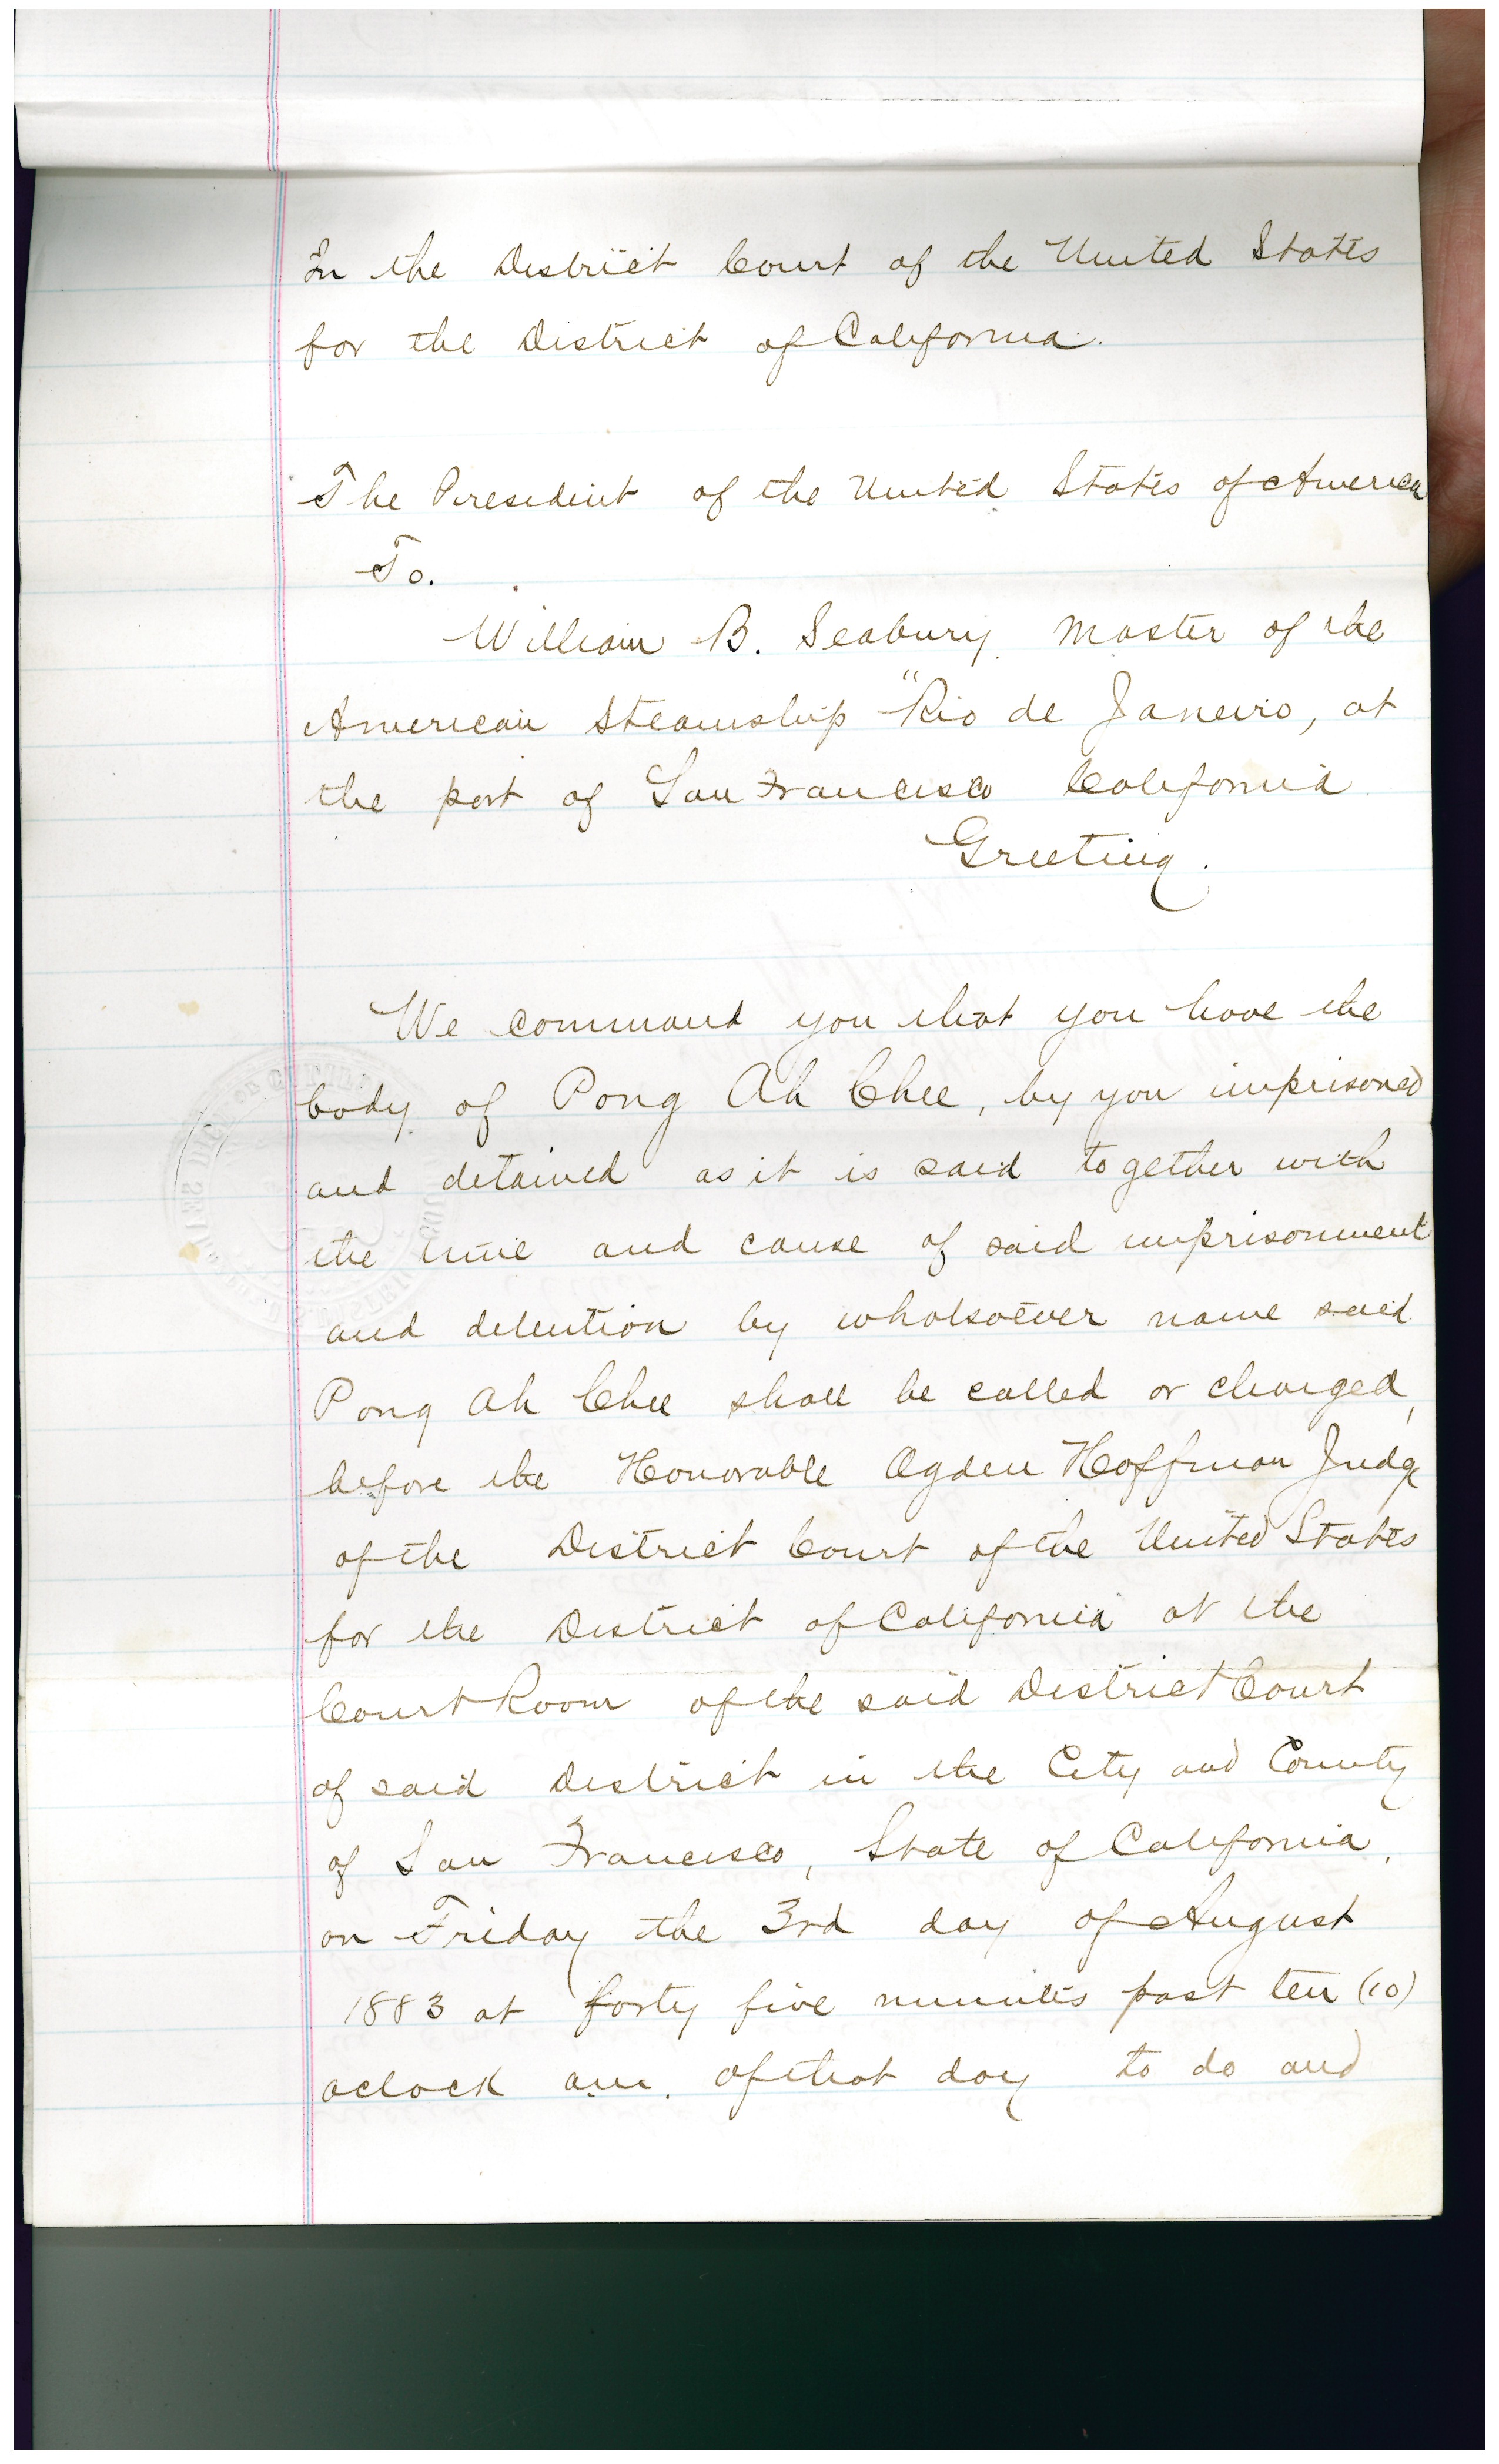 In the District Court of the United States
for the District of California.
The President of the United States of America
To.
William B. Seabury Master of the
American Steamship "Rio de Janeiro, at
the port of San Francisco California
Greeting.
We command you that you have the
body of Pong Ah Chee, by you imprisoned
and detained as it is said together with
the time and cause of said imprisonment
and detention by whatsoever name said
Pong Ah Chee shall be called or charged,
before the Honorable Ogden Hoffman Judge
of the District Court of the United States
for the District of California at the
Court Room of the said District Court
of said District in the City and County
of San Francisco, State of California,
on Friday the 3rd day of August
1883 at forty five minutes past ten (10)
oclock am. of that day to do and